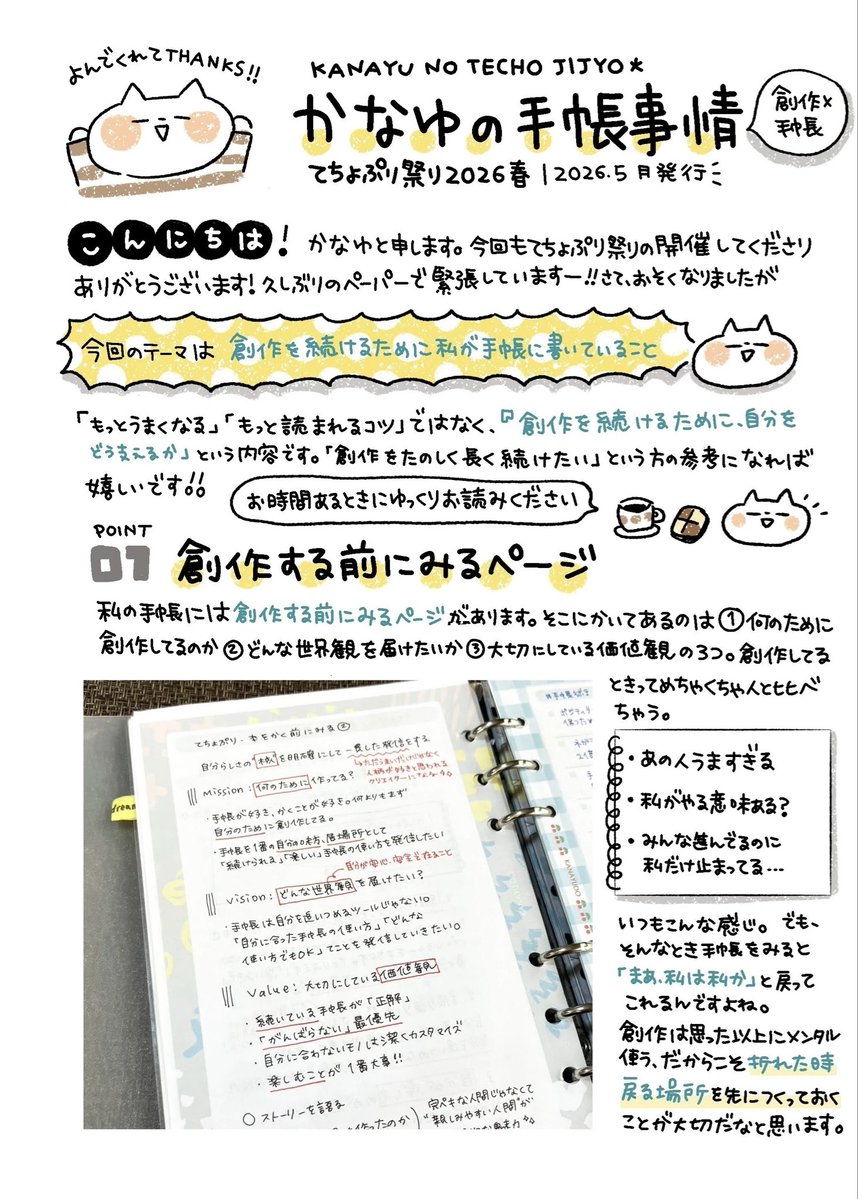 よんでくれてTHANKS!!
KANAYU NO TECHO JIJYO★
かなゆの手帳事情
創作×
手帳
てちょぷり祭り2026春 | 2026.5月発行
こんにちは! かなゆと申します。今回もてちょぷり祭りの開催してくださり
ありがとうございます!久しぶりのペーパーで緊張していますー!!さて、おそくなりましたが
今回のテーマは 創作を続けるために私が手帳に書いていること
「もっとうまくなる」「もっと読まれるコツ」ではなく、『創作を続けるために、自分を
どう支えるか」という内容です。「創作をたのしく長く続けたい」という方の参考になれば
嬉しいです!!
お時間あるときにゆっくりお読みください
POINT
01 創作する前にみるページ
私の手帳には創作する前にみるページがあります。そこにかいてあるのは①何のために
創作してるのか②どんな世界観を届けたいか③大切にしている価値観の3つ。創作してる
ときってめちゃくちゃ人と比べ
ちゃう。
・あの人うますぎる
・私がやる意味ある?
・みんな進んでるのに
私だけ止まってる…
いつもこんな感じ。でも、
そんなとき手帳をみると
「まあ、私は私か」と戻って
これるんですよね。
創作は思った以上にメンタル
使う、だからこそ折れた時
戻る場所を先につくっておく
ことが大切だなと思います。
dream
てちょぷり・本をかく前にみる②
自分らしさの を明確にして一貫した発信をする
Mission:何のために作ってる?
・手帳が好き、かくことが好き。何よりもまず
自分のために創作してる。
・手帳を1番の自分の味方、居場所として
「続けられる」「楽しい」手帳の使い方を発信したい
自分が安心、安全であること
Vision:どんな世界観を届けたい?
・手帳は自分を追いつめるツールじゃない。
「自分に合った手帳の使い方」「どんな
使い方でもOK」てことを発信していきたい。
Value:大切にしている価値観
・続いている手帳が「正解」
・「がんばらない」最優先
・自分に合わないモノは潔くカスタマイズ
・楽しむことが1番大事!!
○ストーリーを語る
完ペキな人間じゃなくて
"親しみやすい人間"が
KANAYUDO